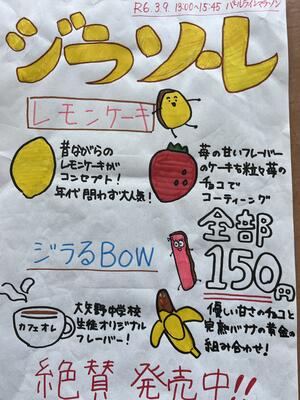 R6.3.9. 13:00~15:45 パールラインマラソン
ジラソーレ
レモンケーキ
昔ながらの
レモンケーキが
コンセプト!
年代問わず大人気!
苺の甘いフレーバー
のケーキも粒々苺の
チョコで
コーティーング
全部
150円
ジラるBOW
カフェオレ
大矢野中学校
生徒オリジナル
フレーバー!
優しい甘さのチョコと
完熟バナナの黄金の
組み合わせ!
絶賛 発売中!!